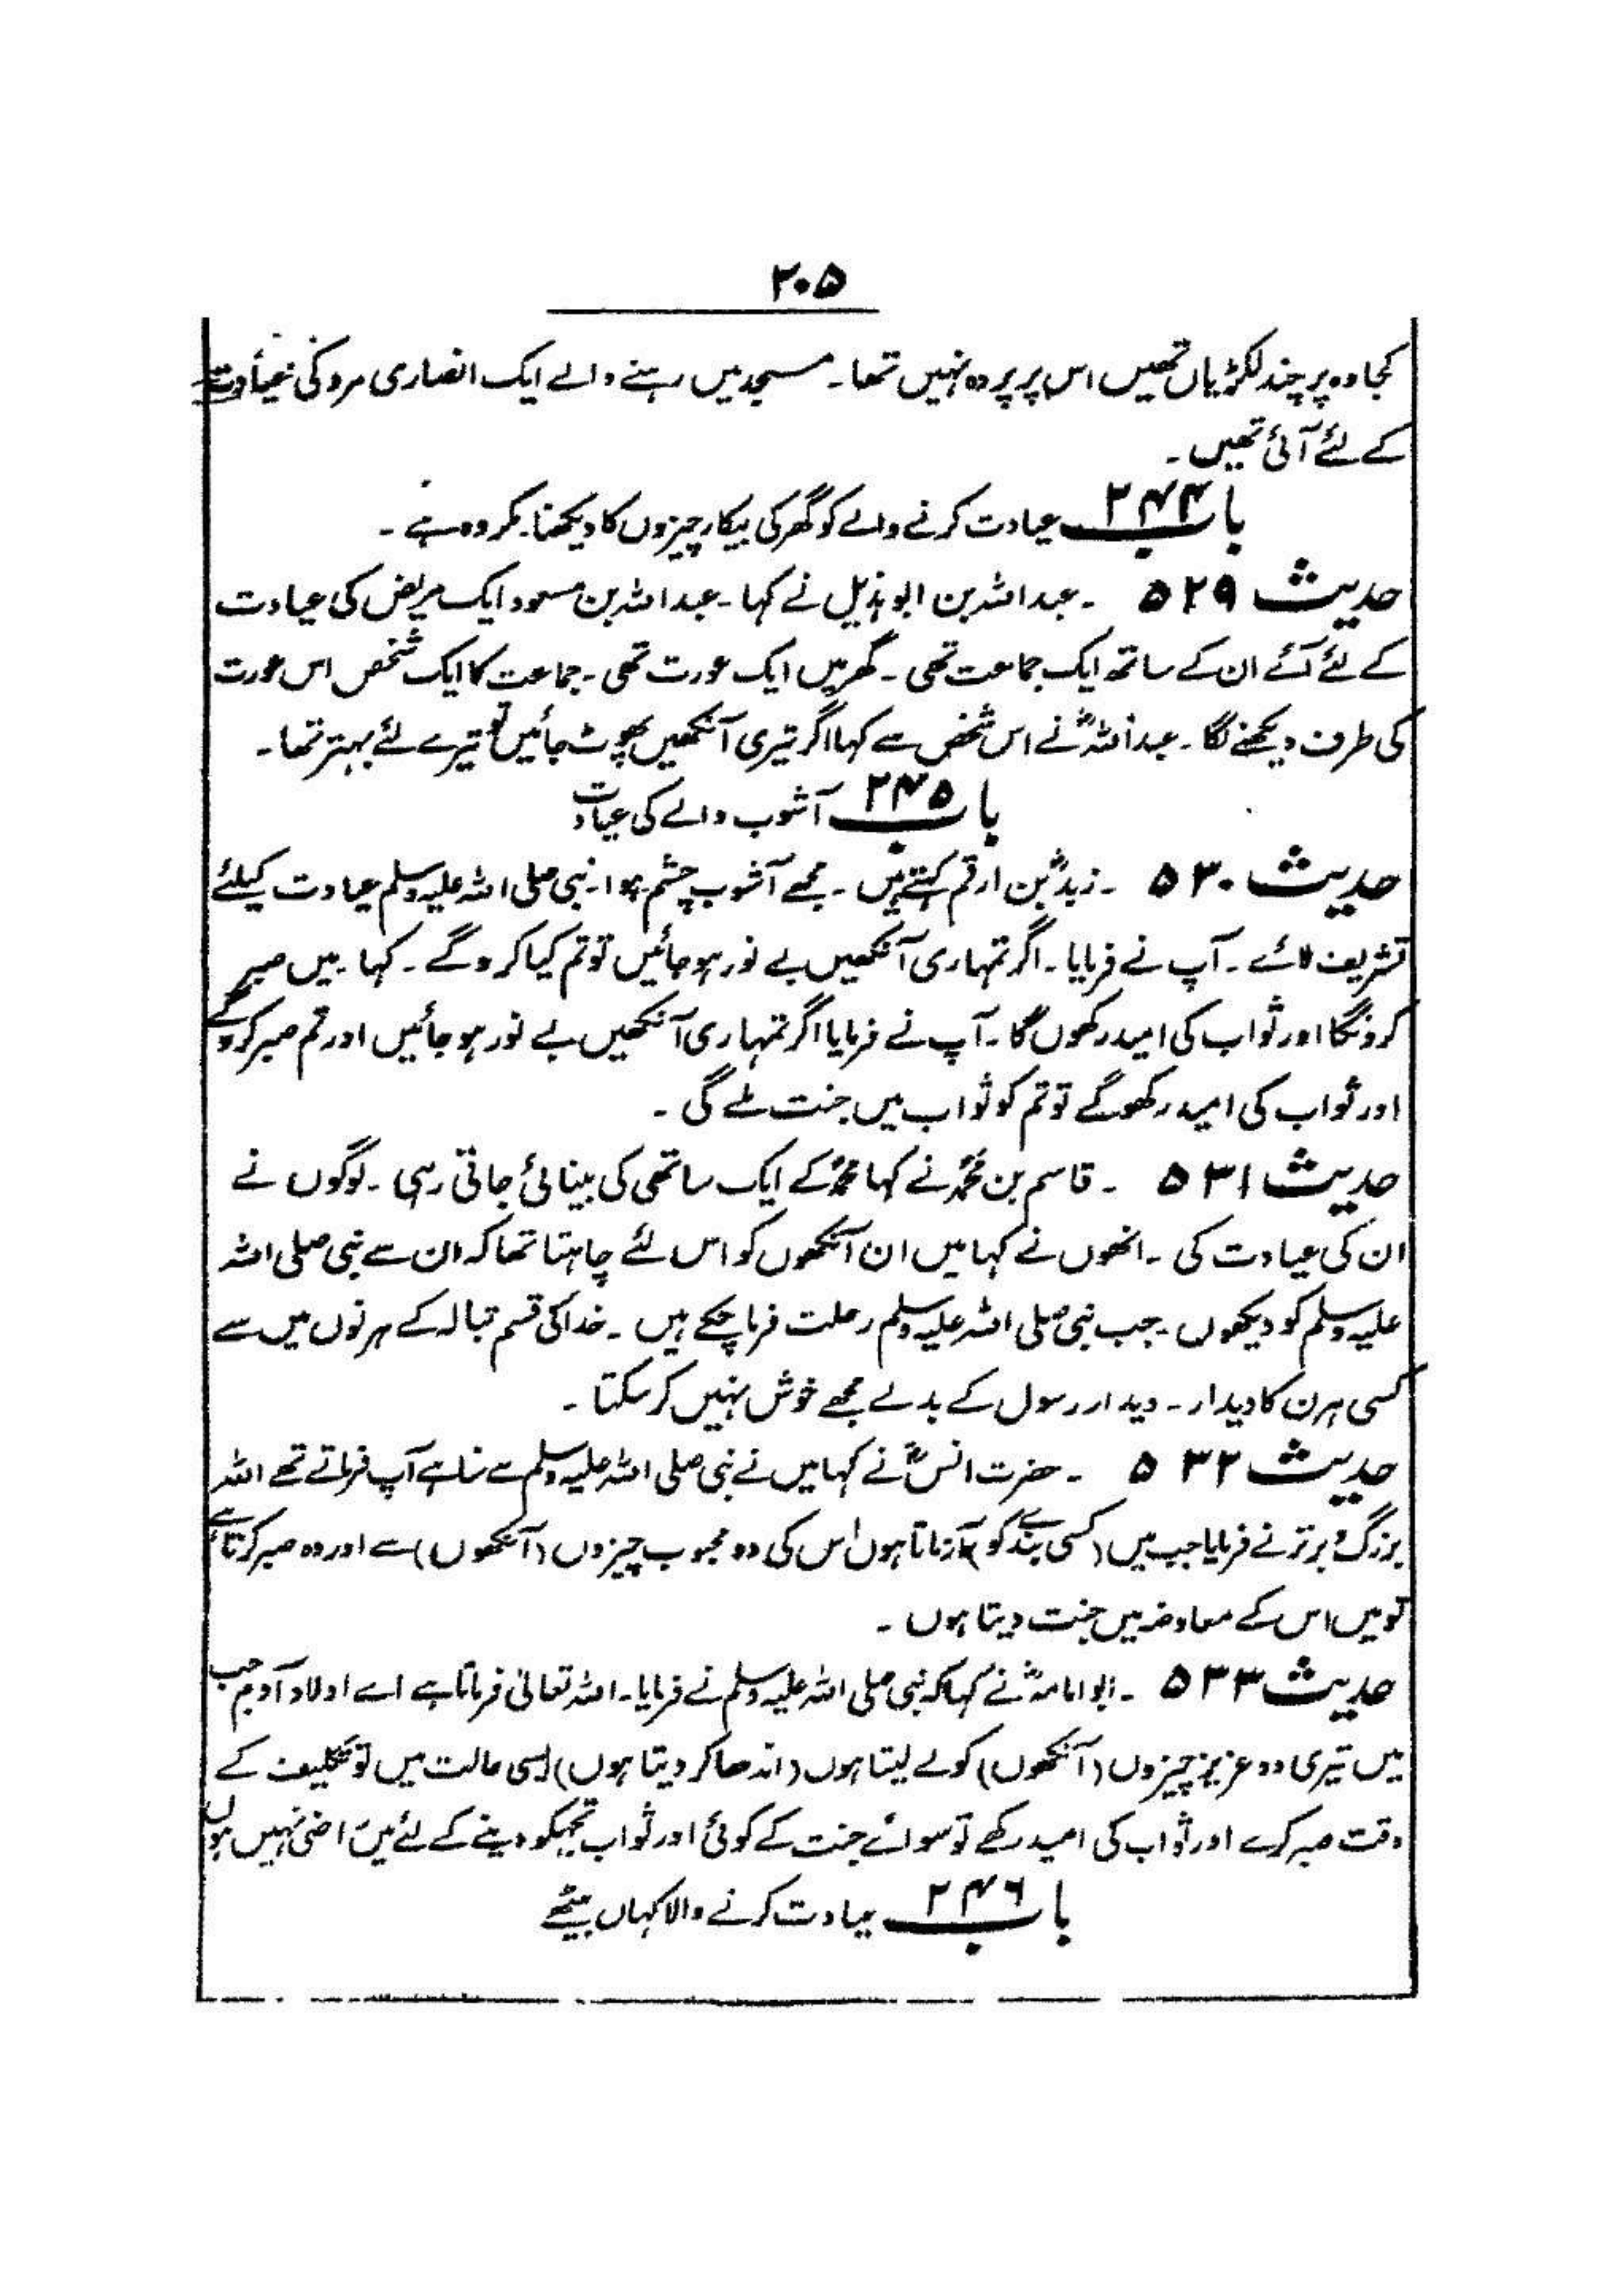 ۲۰۵
کجاوہ پر چند لکڑیاں تھیں اس پر پردہ نہیں تھا۔ مسجد میں رہنے والے ایک انصاری مرد کی عیادت
کے لئے آئی تھیں۔
باب ۲۴۴ عیادت کرنے والے کو گھر کی بیکار چیزوں کا دیکھنا مکروہ ہے۔
حدیث ۵۲۹ ۔ عبداللہ بن ابو ہذیل نے کہا ۔ عبداللہ بن مسعود ایک مریض کی عیادت
کے لئے آئے ان کے ساتھ ایک جماعت تھی ۔ گھر میں ایک عورت تھی ۔ جماعت کا ایک شخص اس عورت
کی طرف دیکھنے لگا ۔ عبداللہؓ نے اس شخص سے کہا اگر تیری آنکھیں پھوٹ جائیں تو تیرے لئے بہتر تھا ۔
باب ۲۴۵ آشوب والے کی عیادت
حدیث ۵۳۰ ۔ زیدؓ بن ارقم کہتے ہیں ۔ مجھے آشوب چشم ہوا ۔ نبی صلی اللہ علیہ وسلم عیادت کیلئے
تشریف لائے ۔ آپ نے فرمایا ۔ اگر تمہاری آنکھیں بے نور ہو جائیں تو تم کیا کرو گے ۔ کہا ۔ میں صبر
کرونگا اور ثواب کی امید رکھوں گا ۔ آپ نے فرمایا اگر تمہاری آنکھیں بے نور ہو جائیں اور تم صبر کرو گے
اور ثواب کی امید رکھو گے تو تم کو ثواب میں جنت ملے گی ۔
حدیث ۵۳۱ ۔ قاسم بن محمدؒ نے کہا محمدؐ کے ایک ساتھی کی بینائی جاتی رہی ۔ لوگوں نے
ان کی عیادت کی ۔ انھوں نے کہا میں ان آنکھوں کو اس لئے چاہتا تھا کہ ان سے نبی صلی اللہ
علیہ وسلم کو دیکھوں ۔ جب نبی صلی اللہ علیہ وسلم رحلت فرما چکے ہیں ۔ خدا کی قسم تبالہ کے ہرنوں میں سے
کسی ہرن کا دیدار ۔ دیدار رسول کے بدلے مجھے خوش نہیں کر سکتا ۔
حدیث ۵۳۲ ۔ حضرت انسؓ نے کہا میں نے نبی صلی اللہ علیہ وسلم سے سنا ہے آپ فرماتے تھے اللہ
بزرگ و برتر نے فرمایا جب میں (کسی بندے کو) آزماتا ہوں اس کی دو محبوب چیزوں (آنکھوں) سے اور وہ صبر کرتا ہے
تو میں اس کے معاوضہ میں جنت دیتا ہوں ۔
حدیث ۵۳۳ ۔ ابو امامہؓ نے کہا کہ نبی صلی اللہ علیہ وسلم نے فرمایا ۔ اللہ تعالیٰ فرماتا ہے اے اولاد آدم جب
میں تیری دو عزیز چیزوں (آنکھوں) کو لے لیتا ہوں (اندھا کر دیتا ہوں) ایسی حالت میں تو تکلیف کے
وقت صبر کرے اور ثواب کی امید رکھے تو سوائے جنت کے کوئی اور ثواب تجھکو دینے کے لئے میں راضی نہیں ہوں
باب ۲۴۶ عیادت کرنے والا کہاں بیٹھے